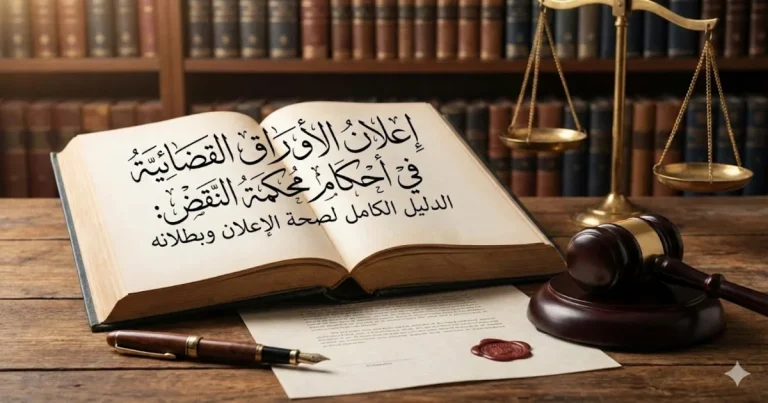 إِعلانُ الأَورَاق القَضَائِيَّةُ
في أَحكَامِ مُحكَمَة النَّقضِ:
الدليل الكامل لصحة الإعلان وبطلانه